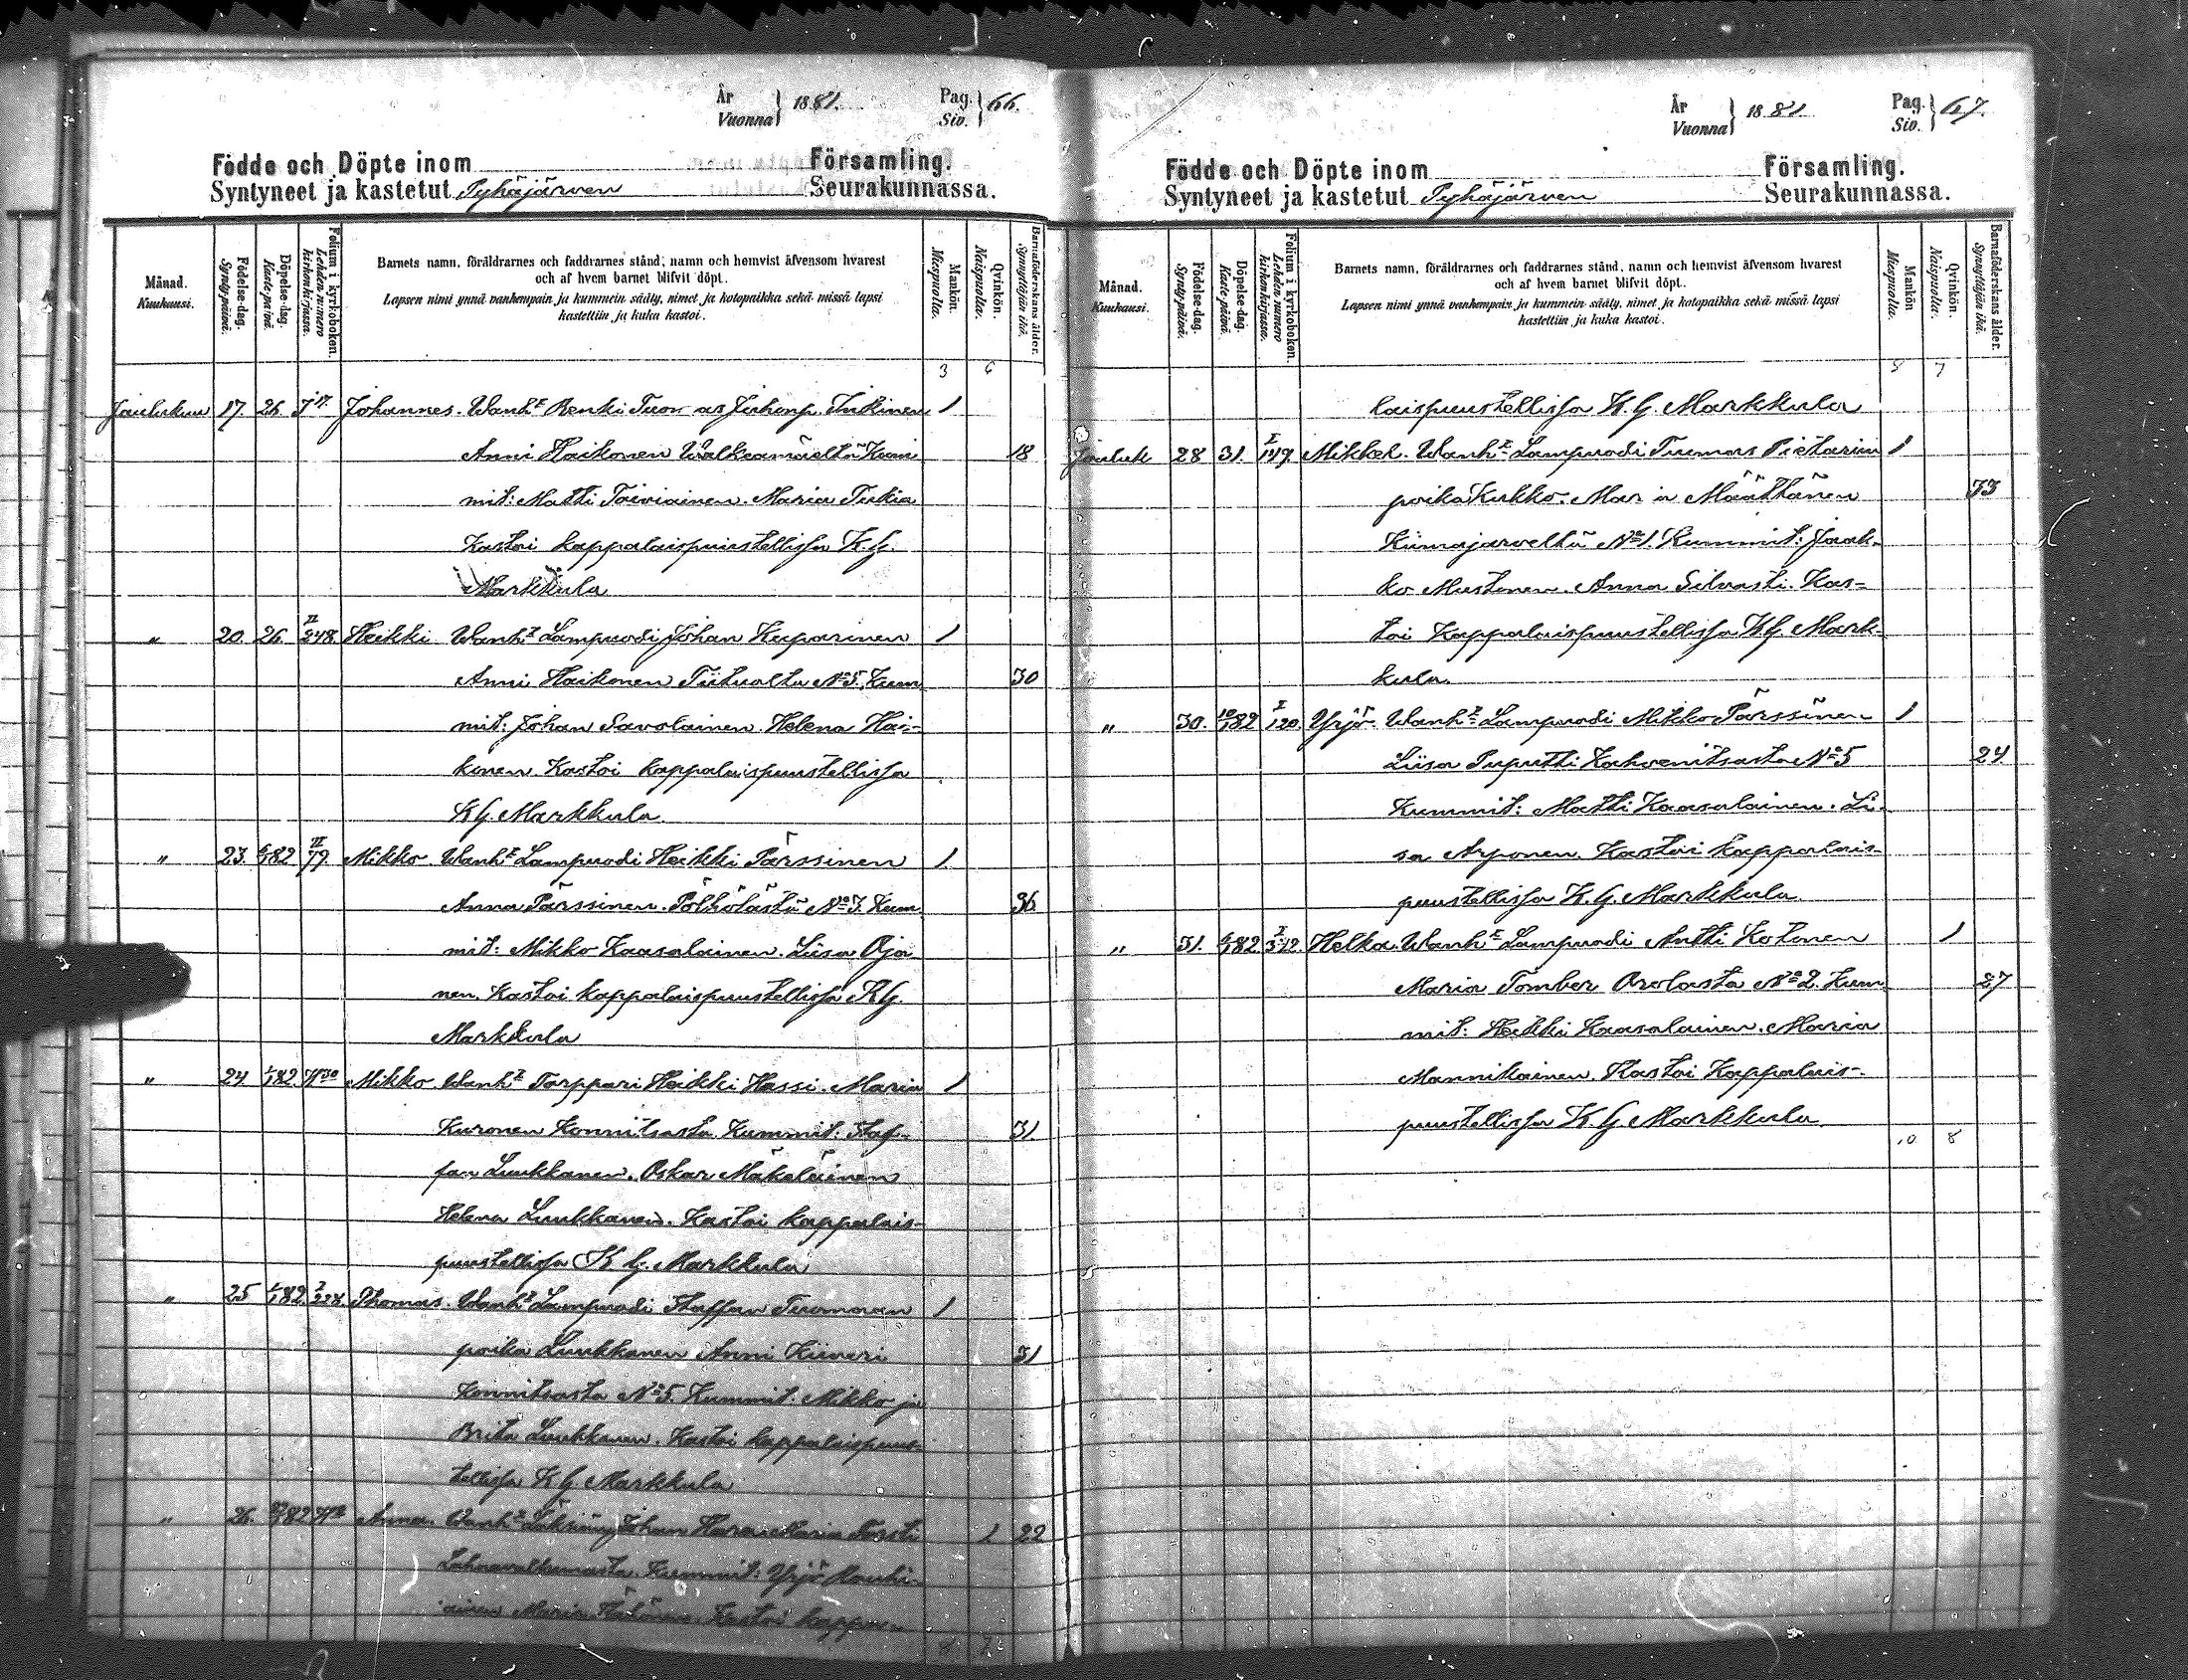 År
Vuonna } 1881. Pag. Siv. } 66.
Födde och Döpte inom Församling.
Syntyneet ja kastetut Pyhäjärven Seurakunnassa.
Månad. Kuukausi. Födelse-dag. Synty-päivä. Döpelse-dag. Kaste-päivä. Folium i kyrkoboken. Lehden numero kirkonkirjassa. Barnets namn, föräldrarnes och faddrarnes stånd, namn och hemvist äfvensom hvarest och af hvem barnet blifvit döpt. Lapsen nimi ynnä vanhempain ja kummein sääty, nimet ja kotopaikka sekä missä lapsi kastettiin ja kuka kastoi. Mankön. Miespuolia. Qvinkön. Naispuolia. Barnaföderskans ålder. Synnyttäjän ikä.
3 6
Joulukuu 17. 26. Johannes. Wanht Renki Tuom as Juhonp. Inkinen 1
Anni Haikonen Walkeamäeltä Kum 18
mit: Matti Toiviainen. Maria Tukia
Kastoi kappalaispuustellissa K. G.
Markkula
" 20. 26. II 248. Heikki Wanht Lampuodi Johan Kuparinen 1
Anni Haikonen Tiitualta No 5. Kum 30
mit: Johan Savolainen. Helena Hai-
konen. Kastoi kappalaispuustellissa
K G. Markkula.
" 23. 6/1 82 II 79. Mikko Wanht Lampuodi Heikki Pärssinen 1.
Anna Pärssinen. Pölhölästä No 3. Kum 36
mit: Mikko Kaasalainen. Liisa Oja
nen. Kastoi kappalaispuustellissa K G.
Markkula
" 24 1/1 82 Mikko Wanht Torppari Heikki Hassi. Maria 1
Kuronen Konnitsasta. Kummit: Staf-
fan Luukkanen. Oskar Mäkeläinen 31
Helena Luukkanen. Kastoi kappalais-
puustellissa K G. Markkula
" 25 1/1 82. I 228. Thomas. Wanht Lampuodi Staffan Tuomaan 1
poika Luukkanen Anni Kiiveri 31
Konnitsasta No 5. Kummit: Mikko ja
Brita Luukkanen. Kastoi kappalaispuus-
tellissa K G. Markkula
" 26. Anna. Wanht Johan Maria Torsti 1 22
Kummit: Yrjö Rouhi-
ainen Maria Kastoi kappa-
8 7
År
Vuonna } 1881. Pag. Siv. } 67.
Födde och Döpte inom Församling.
Syntyneet ja kastetut Pyhäjärven Seurakunnassa.
Månad. Kuukausi. Födelse-dag. Synty-päivä. Döpelse-dag. Kaste-päivä. Folium i kyrkoboken. Lehden numero kirkonkirjassa. Barnets namn, föräldrarnes och faddrarnes stånd, namn och hemvist äfvensom hvarest och af hvem barnet blifvit döpt. Lapsen nimi ynnä vanhempain ja kummein sääty, nimet ja kotopaikka sekä missä lapsi kastettiin ja kuka kastoi. Mankön Miespuolia. Qvinkön. Naispuolia. Barnaföderskans ålder. Synnyttäjän ikä.
8 7
laispuustellissa K. G. Markkula
Jouluk 28 31. I 147. Mikkel. Wanht Lampuodi Tuomas Pietarin 1
poika Kukko. Maria Määttänen 33
Kiimajärveltä No 1. Kummit: Jaak-
ko Mustonen. Anna Silvasti. Kas-
toi Kappalaispuustellissa K G. Mark-
kula.
" 30. 10/1 82 I 120. Yrjö Wanht Lampuodi Mikko Pärssinen 1
Liisa Puputti Kahvenitsasta No 5 24
Kummit: Matti Kaasalainen. Li-
sa Arponen. Kastoi kappalais-
puustellissa K. G. Markkula.
" 31. 6/1 82 I 312. Helka. Wanht Lampuodi Antti Kotonen 1
Maria Tomber Orolasta No 2. Kum 27
mit: Heikki Kaasalainen. Maria
Mannikainen. Kastoi Kappalais-
puustellissa K G Markkula.
10 8